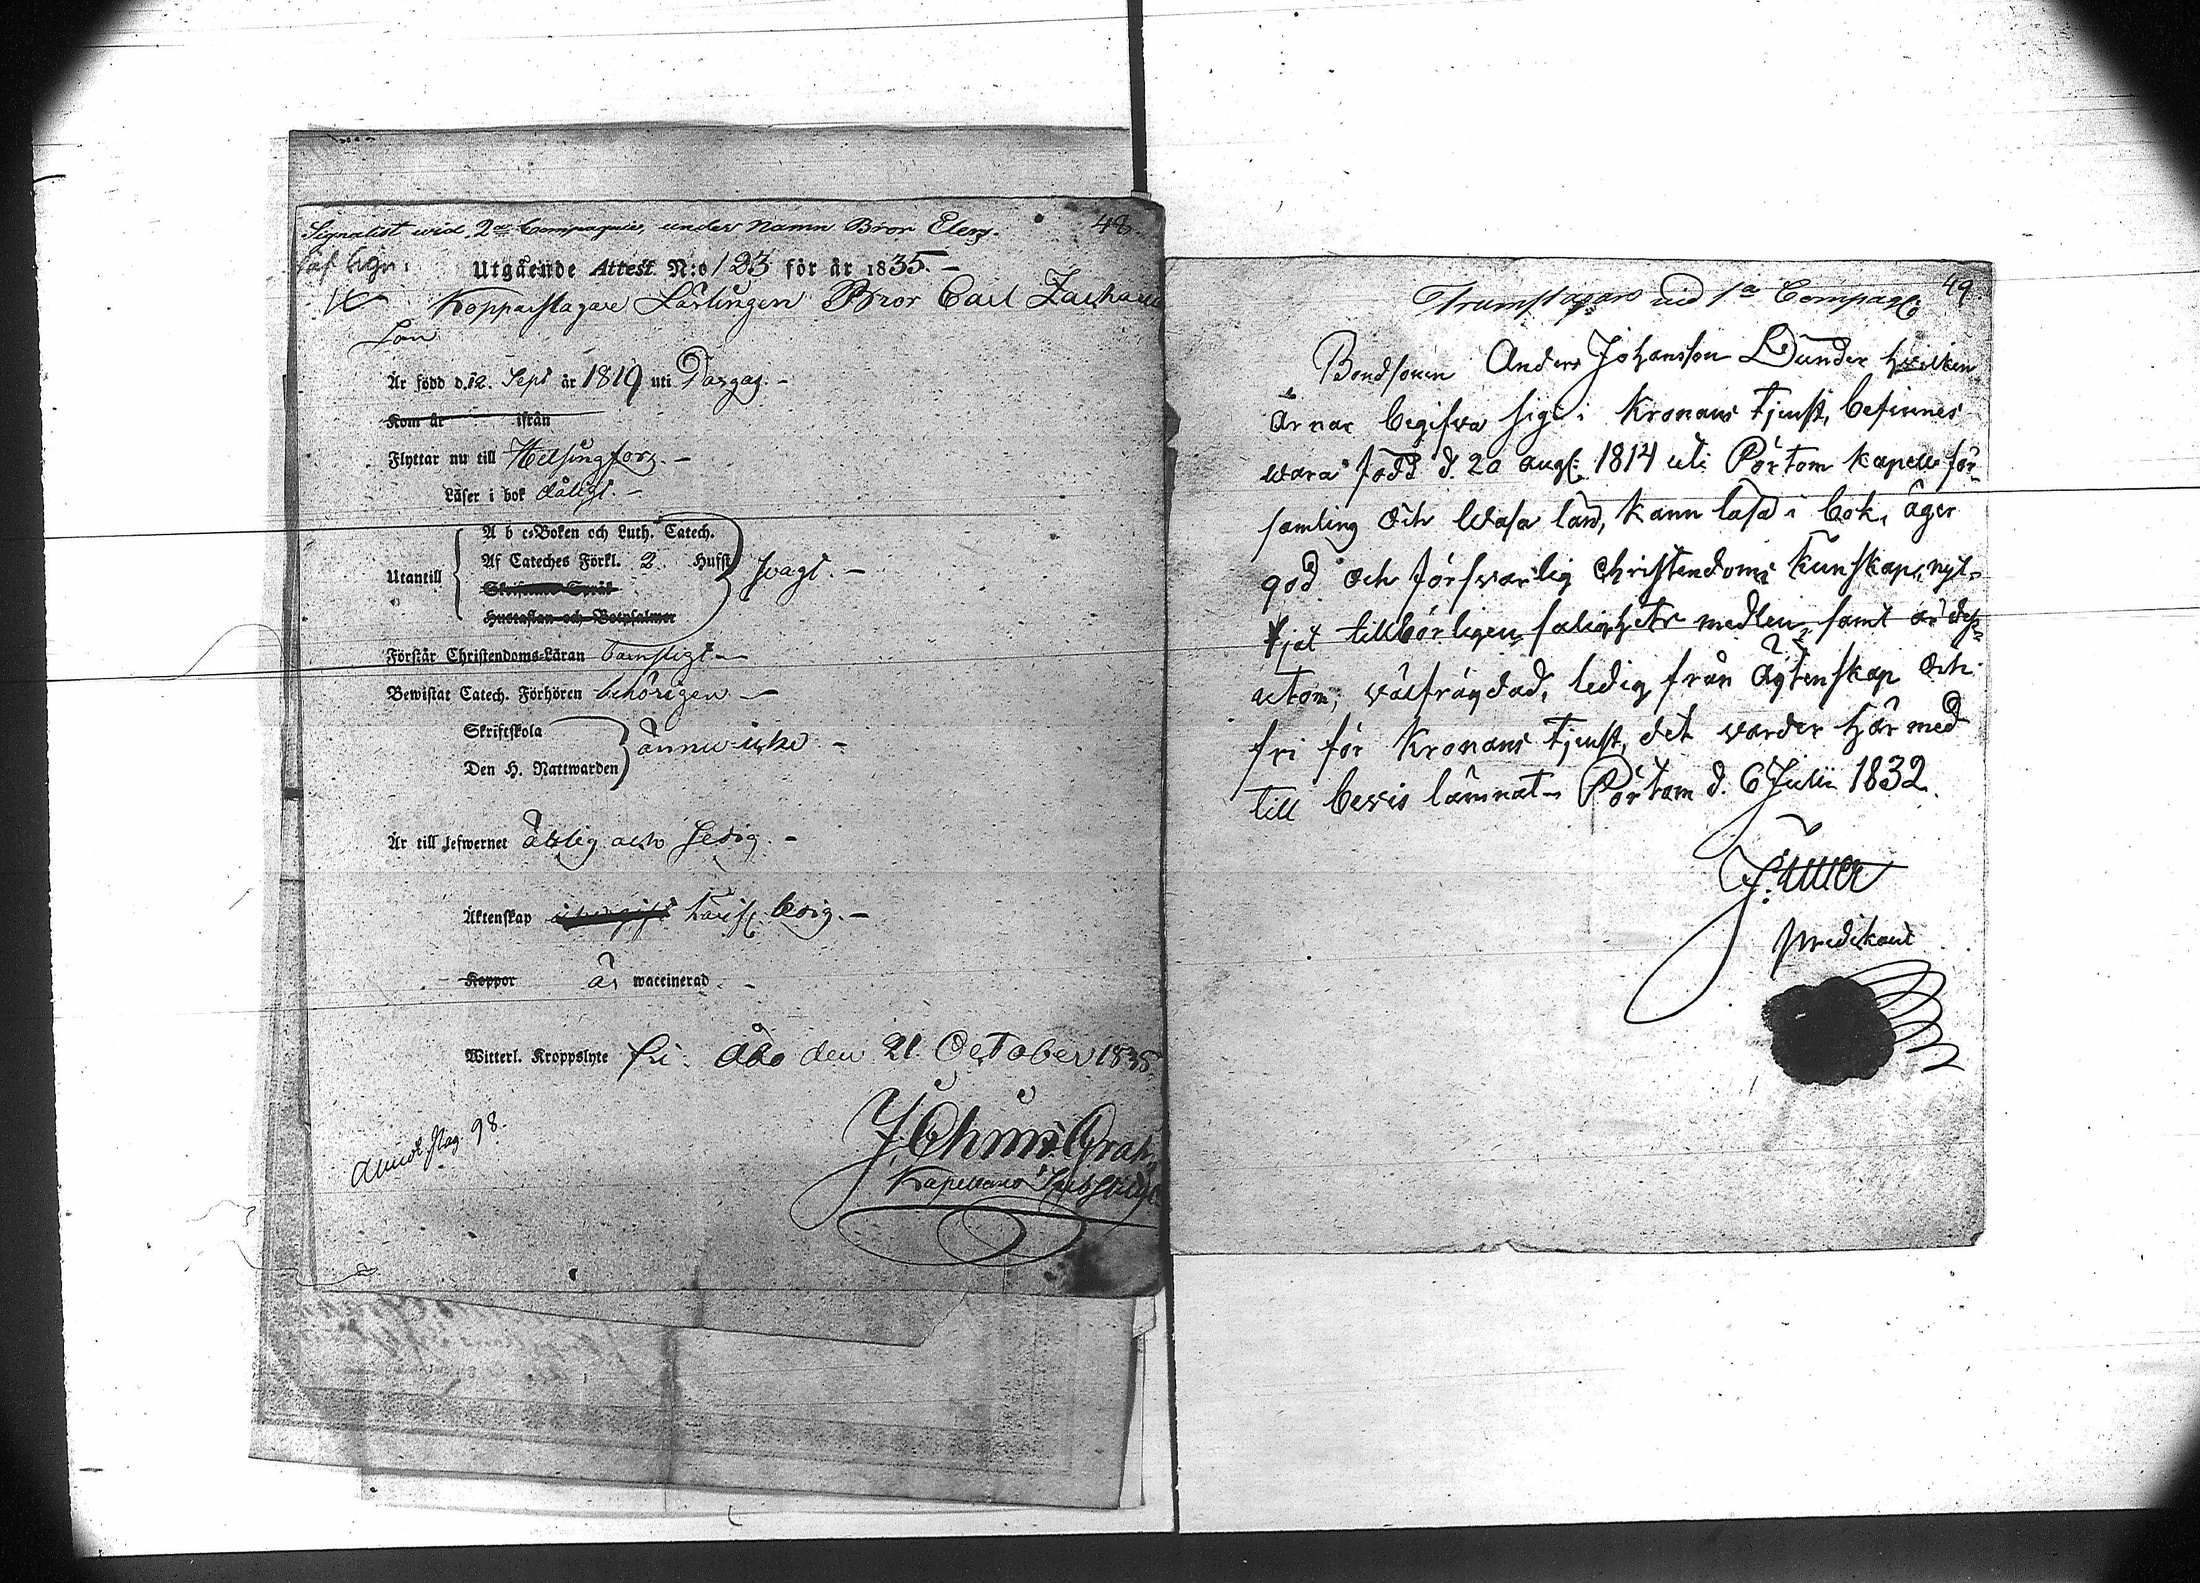 Signalist wid 2a Compagnie, under Namn Bror Elers.
48.
Utgående Attest N:o 123 för år 1835. –
Kopparslagare Lärlingen Bror Carl Zacharias
son
Är född d. 12. Sept år 1819 uti Pargas. –
Kom år ifrån
Flyttar nu till Helsingfors. –
Läser i bok dåligt. –
A b c-Boken och Luth. Catech.
Utantill Af Cateches Förkl. 2 Hufst svagt. –
Skriftens Språk
Hustaflan och Botpsalmer
Förstår Christendoms-Läran tarfligt –
Bewistat Catech. Förhören behörigen –
Skriftskola
ännu icke –
Den H. Nattwarden
Är till lefwernet ärlig och sedig. –
Äktenskap ledig. –
Koppor är waccinerad –
Witterl. Kroppslyte fri. Åbo den 21. October 1835.
J. Ehrnr. Grah
Kapellans
98.
49.
Trumslagare vid 1a Compag:
Bondsonen Anders Johansson Dunder hvilken
ärnar begifva sig i Kronans tjenst, befinnes
wara född d. 20 aug: 1814 uti Pörtom kapell för-
samling och Wasa län, kann läsa i bok, äger
god och försvarlig Christendoms kunskap, nyt-
tjat tillbörligen salighets medlen, samt är dess-
utom, välfrägdad, ledig från Ägtenskap och
fri för Kronans tjenst, det varder här med
till bevis lämnat – Pörtom d. 6 Julii 1832.
Predikant